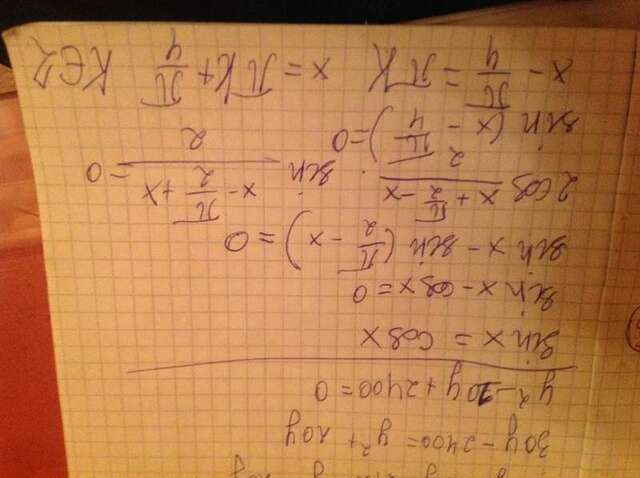 30y - 2400 = y² + 20y
y² - 10y + 2400 = 0
sin x = cos x
sin x - cos x = 0
sin x - sin (π/2 - x) = 0
2 cos (x + π/2 - x)/2 · sin (x - π/2 + x)/2 = 0
sin (x - π/4) = 0
x - π/4 = πK x = πK + π/4 K∈Z